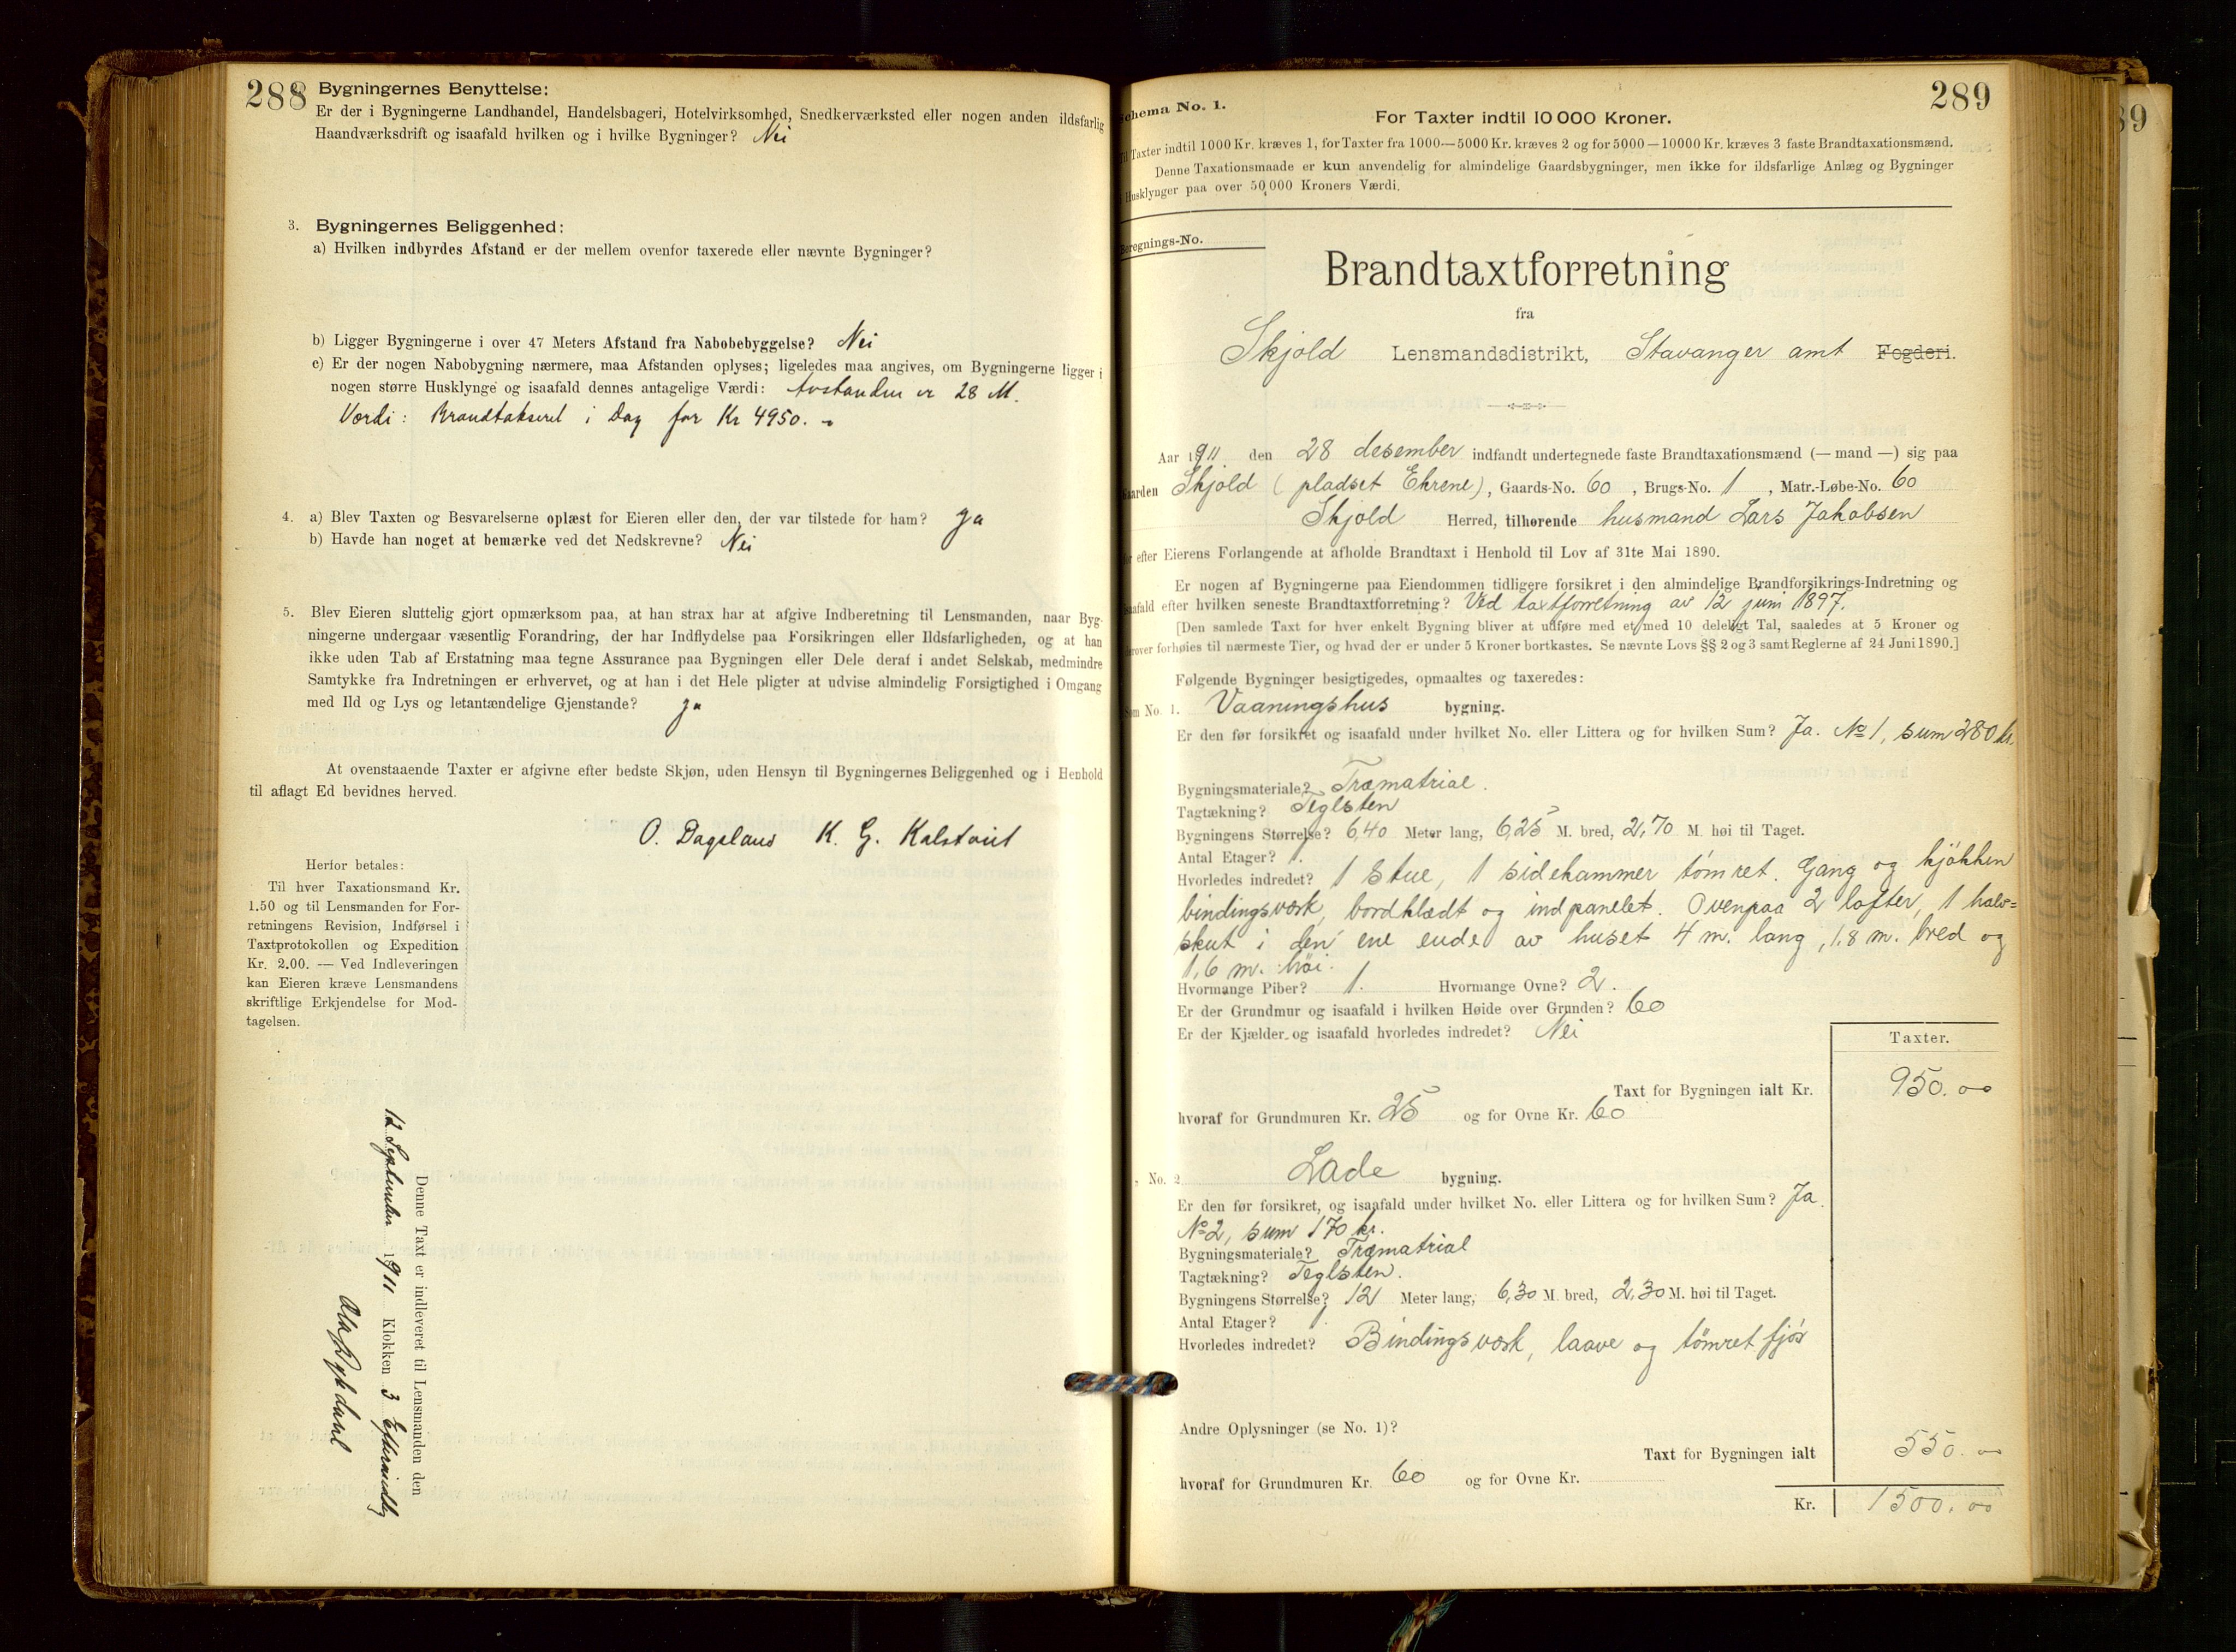 288
Bygningernes Benyttelse:
Er der i Bygningerne Landhandel, Handelsbageri, Hotelvirksomhed, Snedkerværksted eller nogen anden ildsfarlig
Haandværksdrift og isaafald hvilken og i hvilke Bygninger? Nei
3. Bygningernes Beliggenhed:
a) Hvilken indbyrdes Afstand er der mellem ovenfor taxerede eller nævnte Bygninger?
b) Ligger Bygningerne i over 47 Meters Afstand fra Nabobebyggelse? Nei
c) Er der nogen Nabobygning nærmere, maa Afstanden oplyses; ligeledes maa angives, om Bygningerne ligger i
nogen større Husklynge og isaafald dennes antagelige Værdi: Avstanden er 28 M.
Værdi: Brandtakseret i Dag for Kr 4950. -
4. a) Blev Taxten og Besvarelserne oplæst for Eieren eller den, der var tilstede for ham? Ja
b) Havde han noget at bemærke ved det Nedskrevne? Nei
5. Blev Eieren sluttelig gjort opmærksom paa, at han strax har at afgive Indberetning til Lensmanden, naar Byg-
ningerne undergaar væsentlig Forandring, der har Indflydelse paa Forsikringen eller Ildsfarligheden, og at han
ikke uden Tab af Erstatning maa tegne Assurance paa Bygningen eller Dele deraf i andet Selskab, medmindre
Samtykke fra Indretningen er erhvervet, og at han i det Hele pligter at udvise almindelig Forsigtighed i Omgang
med Ild og Lys og letantændelige Gjenstande? Ja
At ovenstaaende Taxter er afgivne efter bedste Skjøn, uden Hensyn til Bygningernes Beliggenhed og i Henhold
til aflagt Ed bevidnes herved.
O. Dagsland K. G. Kalstveit
Herfor betales:
Til hver Taxationsmand Kr.
1.50 og til Lensmanden for For-
retningens Revision, Indførsel i
Taxtprotokollen og Expedition
Kr. 2.00. — Ved Indleveringen
kan Eieren kræve Lensmandens
skriftlige Erkjendelse for Mod-
tagelsen.
Denne Taxt er indleveret til Lensmanden den
12 September 1911 Klokken 3 Eftermiddag
289
Schema No. 1.
For Taxter indtil 10 000 Kroner.
Til Taxter indtil 1000 Kr. kræves 1, for Taxter fra 1000—5000 Kr. kræves 2 og for 5000—10000 Kr. kræves 3 faste Brandtaxationsmænd.
Denne Taxationsmaade er kun anvendelig for almindelige Gaardsbygninger, men ikke for ildsfarlige Anlæg og Bygninger
i Husklynger paa over 50,000 Kroners Værdi.
Beregnings-No.
Brandtaxtforretning
fra
Skjold Lensmandsdistrikt, Stavanger amt Fogderi.
Aar 1911 den 28 desember indfandt undertegnede faste Brandtaxationsmænd (— mand —) sig paa
Gaarden Skjold (pladset Ekrene), Gaards-No. 60, Brugs-No. 1, Matr.-Løbe-No. 60
Skjold Herred, tilhørende husmand Lars Jakobsen
for efter Eierens Forlangende at afholde Brandtaxt i Henhold til Lov af 31te Mai 1890.
Er nogen af Bygningerne paa Eiendommen tidligere forsikret i den almindelige Brandforsikrings-Indretning og
isaafald efter hvilken seneste Brandtaxtforretning? Ved taxtforretning av 12 juni 1897.
[Den samlede Taxt for hver enkelt Bygning bliver at udføre med et med 10 deleligt Tal, saaledes at 5 Kroner og
derover forhøies til nærmeste Tier, og hvad der er under 5 Kroner bortkastes. Se nævnte Lovs §§ 2 og 3 samt Reglerne af 24 Juni 1890.]
Følgende Bygninger besigtigedes, opmaaltes og taxeredes:
Som No. 1. Vaaningshus bygning.
Er den før forsikret og isaafald under hvilket No. eller Littera og for hvilken Sum? Ja. No 1, sum 280 kr.
Bygningsmateriale? Træmatrial.
Tagtækning? Teglsten
Bygningens Størrelse? 6,40 Meter lang, 6,25 M. bred, 2,70 M. høi til Taget.
Antal Etager? 1.
Hvorledes indredet? 1 stue, 1 sidekammer tømret. Gang og kjøkken
bindingsværk, bordklædt og indpanelet. Ovenpaa 2 lofter, 1 halv=
skut i den ene ende av huset 4 m. lang, 1,8 m. bred og
1,6 m. høi.
Hvormange Piber? 1. Hvormange Ovne? 2.
Er der Grundmur og isaafald i hvilken Høide over Grunden? 60
Er der Kjælder og isaafald hvorledes indredet? Nei
Taxter.
Taxt for Bygningen ialt Kr. 950.00
hvoraf for Grundmuren Kr. 25 og for Ovne Kr. 60
" No. 2 Lade bygning.
Er den før forsikret, og isaafald under hvilket No. eller Littera og for hvilken Sum? Ja.
No 2, sum 170 kr.
Bygningsmateriale? Træmatrial
Tagtækning? Teglsten.
Bygningens Størrelse? 12 Meter lang, 6,30 M. bred, 2,30 M. høi til Taget.
Antal Etager? 1.
Hvorledes indredet? Bindingsværk, laave og tømret fjøs
Andre Oplysninger (se No. 1)?
Taxt for Bygningen ialt 550.00
hvoraf for Grundmuren Kr. 60 og for Ovne Kr.
Kr. 1500.00